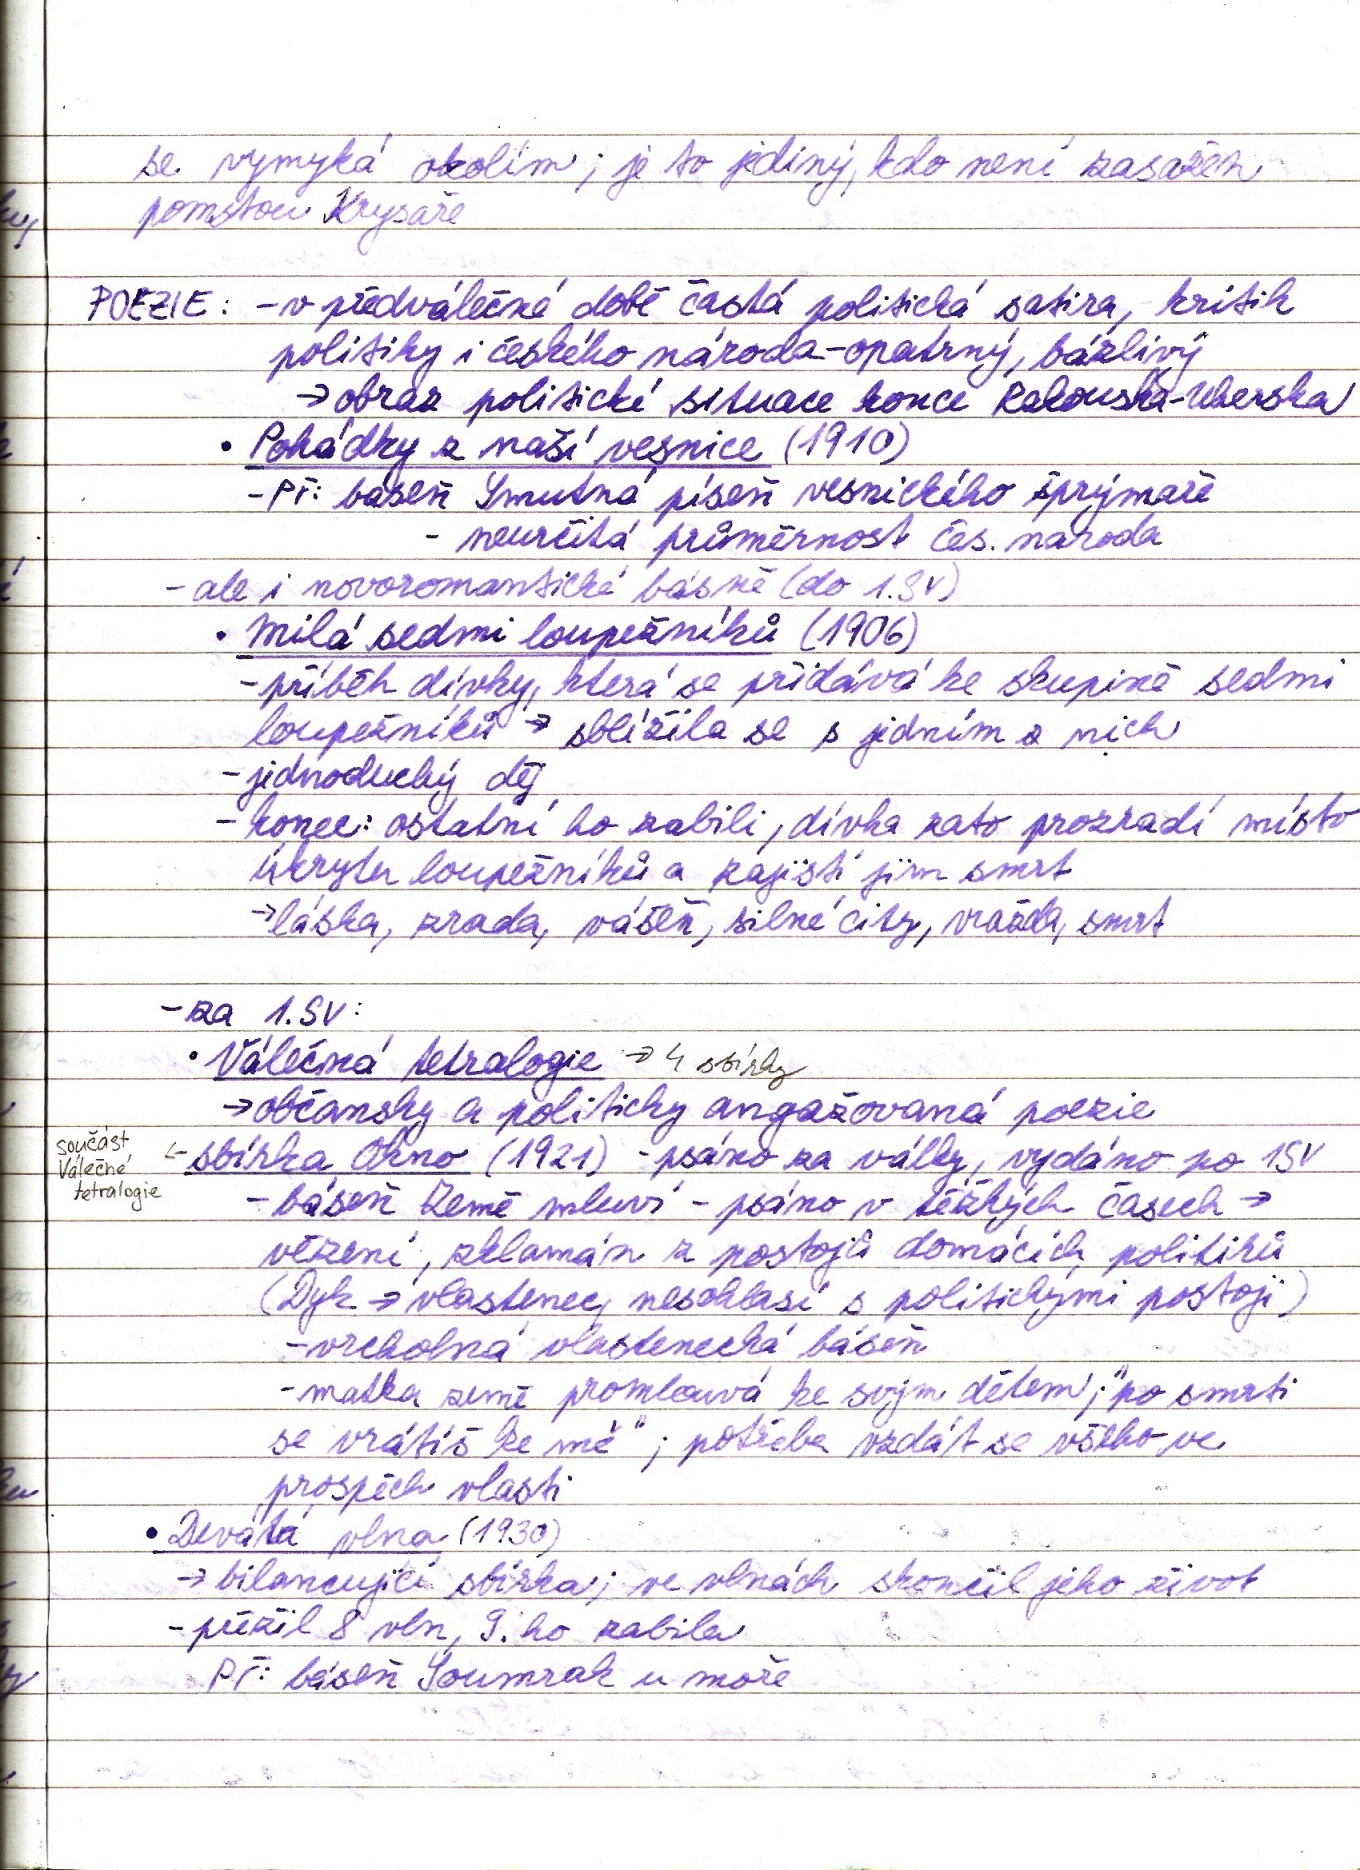 se vymyká okolím; je to jediný, kdo není zasažen
pomstou Krysaře
POEZIE: - v předválečné době častá politická satira, kritik
politiky i českého národa - opatrný, bázlivý
→ obraz politické situace konce Rakouska-Uherska
• Pohádky z naší vesnice (1910)
- Př: báseň Smutná píseň vesnického šprýmaře
- neurčitá průměrnost čes. národa
- ale i novoromantické básně (do 1.SV)
• Milá sedmi loupežníků (1906)
- příběh dívky, která se přidává ke skupině sedmi
loupežníků → sblížila se s jedním z nich
- jednoduchý děj
- konec: ostatní ho zabili, dívka zato prozradí místo
úkrytu loupežníků a zajistí jim smrt
→ láska, zrada, vášeň, silné city, vražda, smrt
- za 1.SV:
• Válečná tetralogie → 4 sbírky
→ občansky a politicky angažovaná poezie
součást
Válečné
tetralogie
← sbírka Okno (1921) - psáno za války, vydáno po 1SV
- báseň Země mluví - psáno v těžkých časech →
vězení, zklamán z postojů domácích politiků
(Dyk → vlastenec, nesohlasí s politickými postoji)
- vrcholná vlastenecká báseň
- matka země promlouvá ke svým dětem; "po smrti
se vrátíš ke mě"; potřeba vzdát se všeho ve
prospěch vlasti
• Devátá vlna (1930)
→ bilancující sbírka; ve vlnách skončil jeho život
- přežil 8 vln, 9. ho zabila
Př: báseň Soumrak u moře